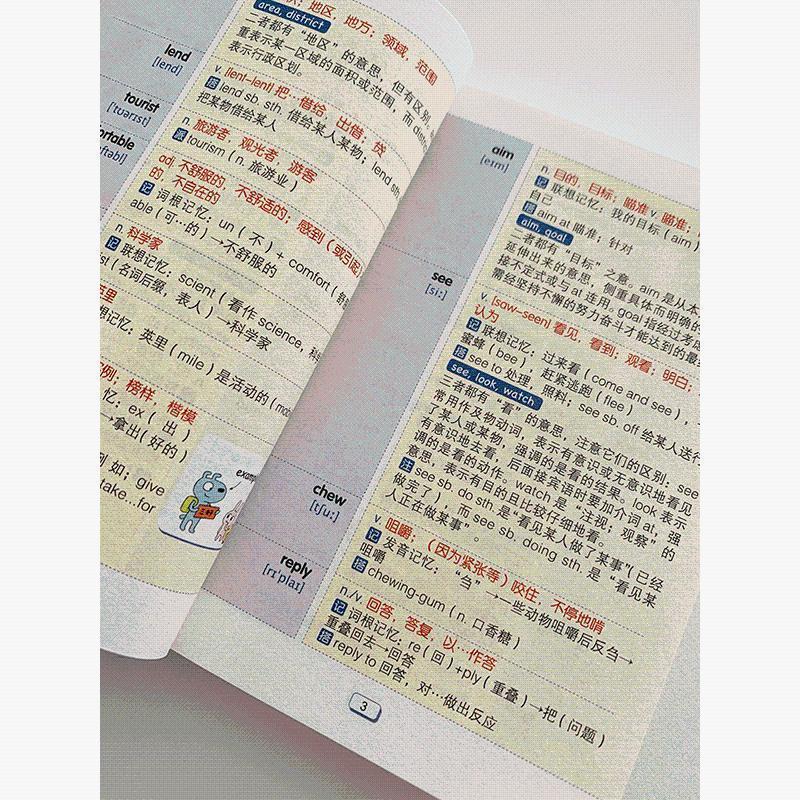 地区，地方；领域，范围
area, district
二者都有“地区”的意思，但有区别
重表示某一区域的面积或范围，而
表示行政区划。
lend
[lend]
v. [lent–lent] 把…借给，出借，贷
搭 lend sb. sth. 借给某人某物；lend sth.
把某物借给某人
tourist
[ˈtʊərɪst]
n. 旅游者，观光者，游客
派 tourism（n. 旅游业）
adj. 不舒服的，不舒适的；感到（或引起
的，不自在的
记 词根记忆：un（不）+ comfort（
able（可…的）→不舒服的
n. 科学家
记 联想记忆：scient（看作 science，科
ist（名词后缀，表人）→科学家
英里
想记忆：英里（mile）是活动的
例；榜样，楷模
忆：ex（出）
→拿出（好的）
例如；give
take…for
三好
aim
[eɪm]
n. 目的，目标；瞄准 v. 瞄准；
记 联想记忆：我的目标（aim）
自己
搭 aim at 瞄准；针对
aim, goal
二者都有“目标”之意。aim 是从本
延伸出来的意思，侧重具体而明确的
接不定式或与 at 连用。goal 指经过考虑
需经坚持不懈的努力奋斗才能达到的最
see
[siː]
v. [saw–seen] 看见，看到；观看；明白；
认为
记 联想记忆：过来看（come and see），
蜜蜂（bee），赶紧逃跑（flee）
搭 see to 处理，照料；see sb. off 给某人送行
see, look, watch
三者都有“看”的意思，注意它们的区别：see
常用作及物动词，表示有意识或无意识地看见
了某人或某物，强调的是看的结果。look 表示
有意识地去看，后面接宾语时要加介词 at，强
调的是看的动作。watch 是“注视；观察”的
意思，表示有目的且比较仔细地看。
注 see sb. do sth. 是“看见某人做了某事”（已经
做完了），而 see sb. doing sth. 是“看见某
人正在做某事”。
chew
[tʃuː]
v. 咀嚼；（因为紧张等）咬住，不停地啃
记 发音记忆：“刍”→一些动物咀嚼后反刍→
咀嚼
搭 chewing-gum（n. 口香糖）
reply
[rɪˈplaɪ]
n./v. 回答，答复，以…作答
记 词根记忆：re（回）+ply（重叠）→把（问题）
重叠回去→回答
搭 reply to 回答，对…做出反应
3